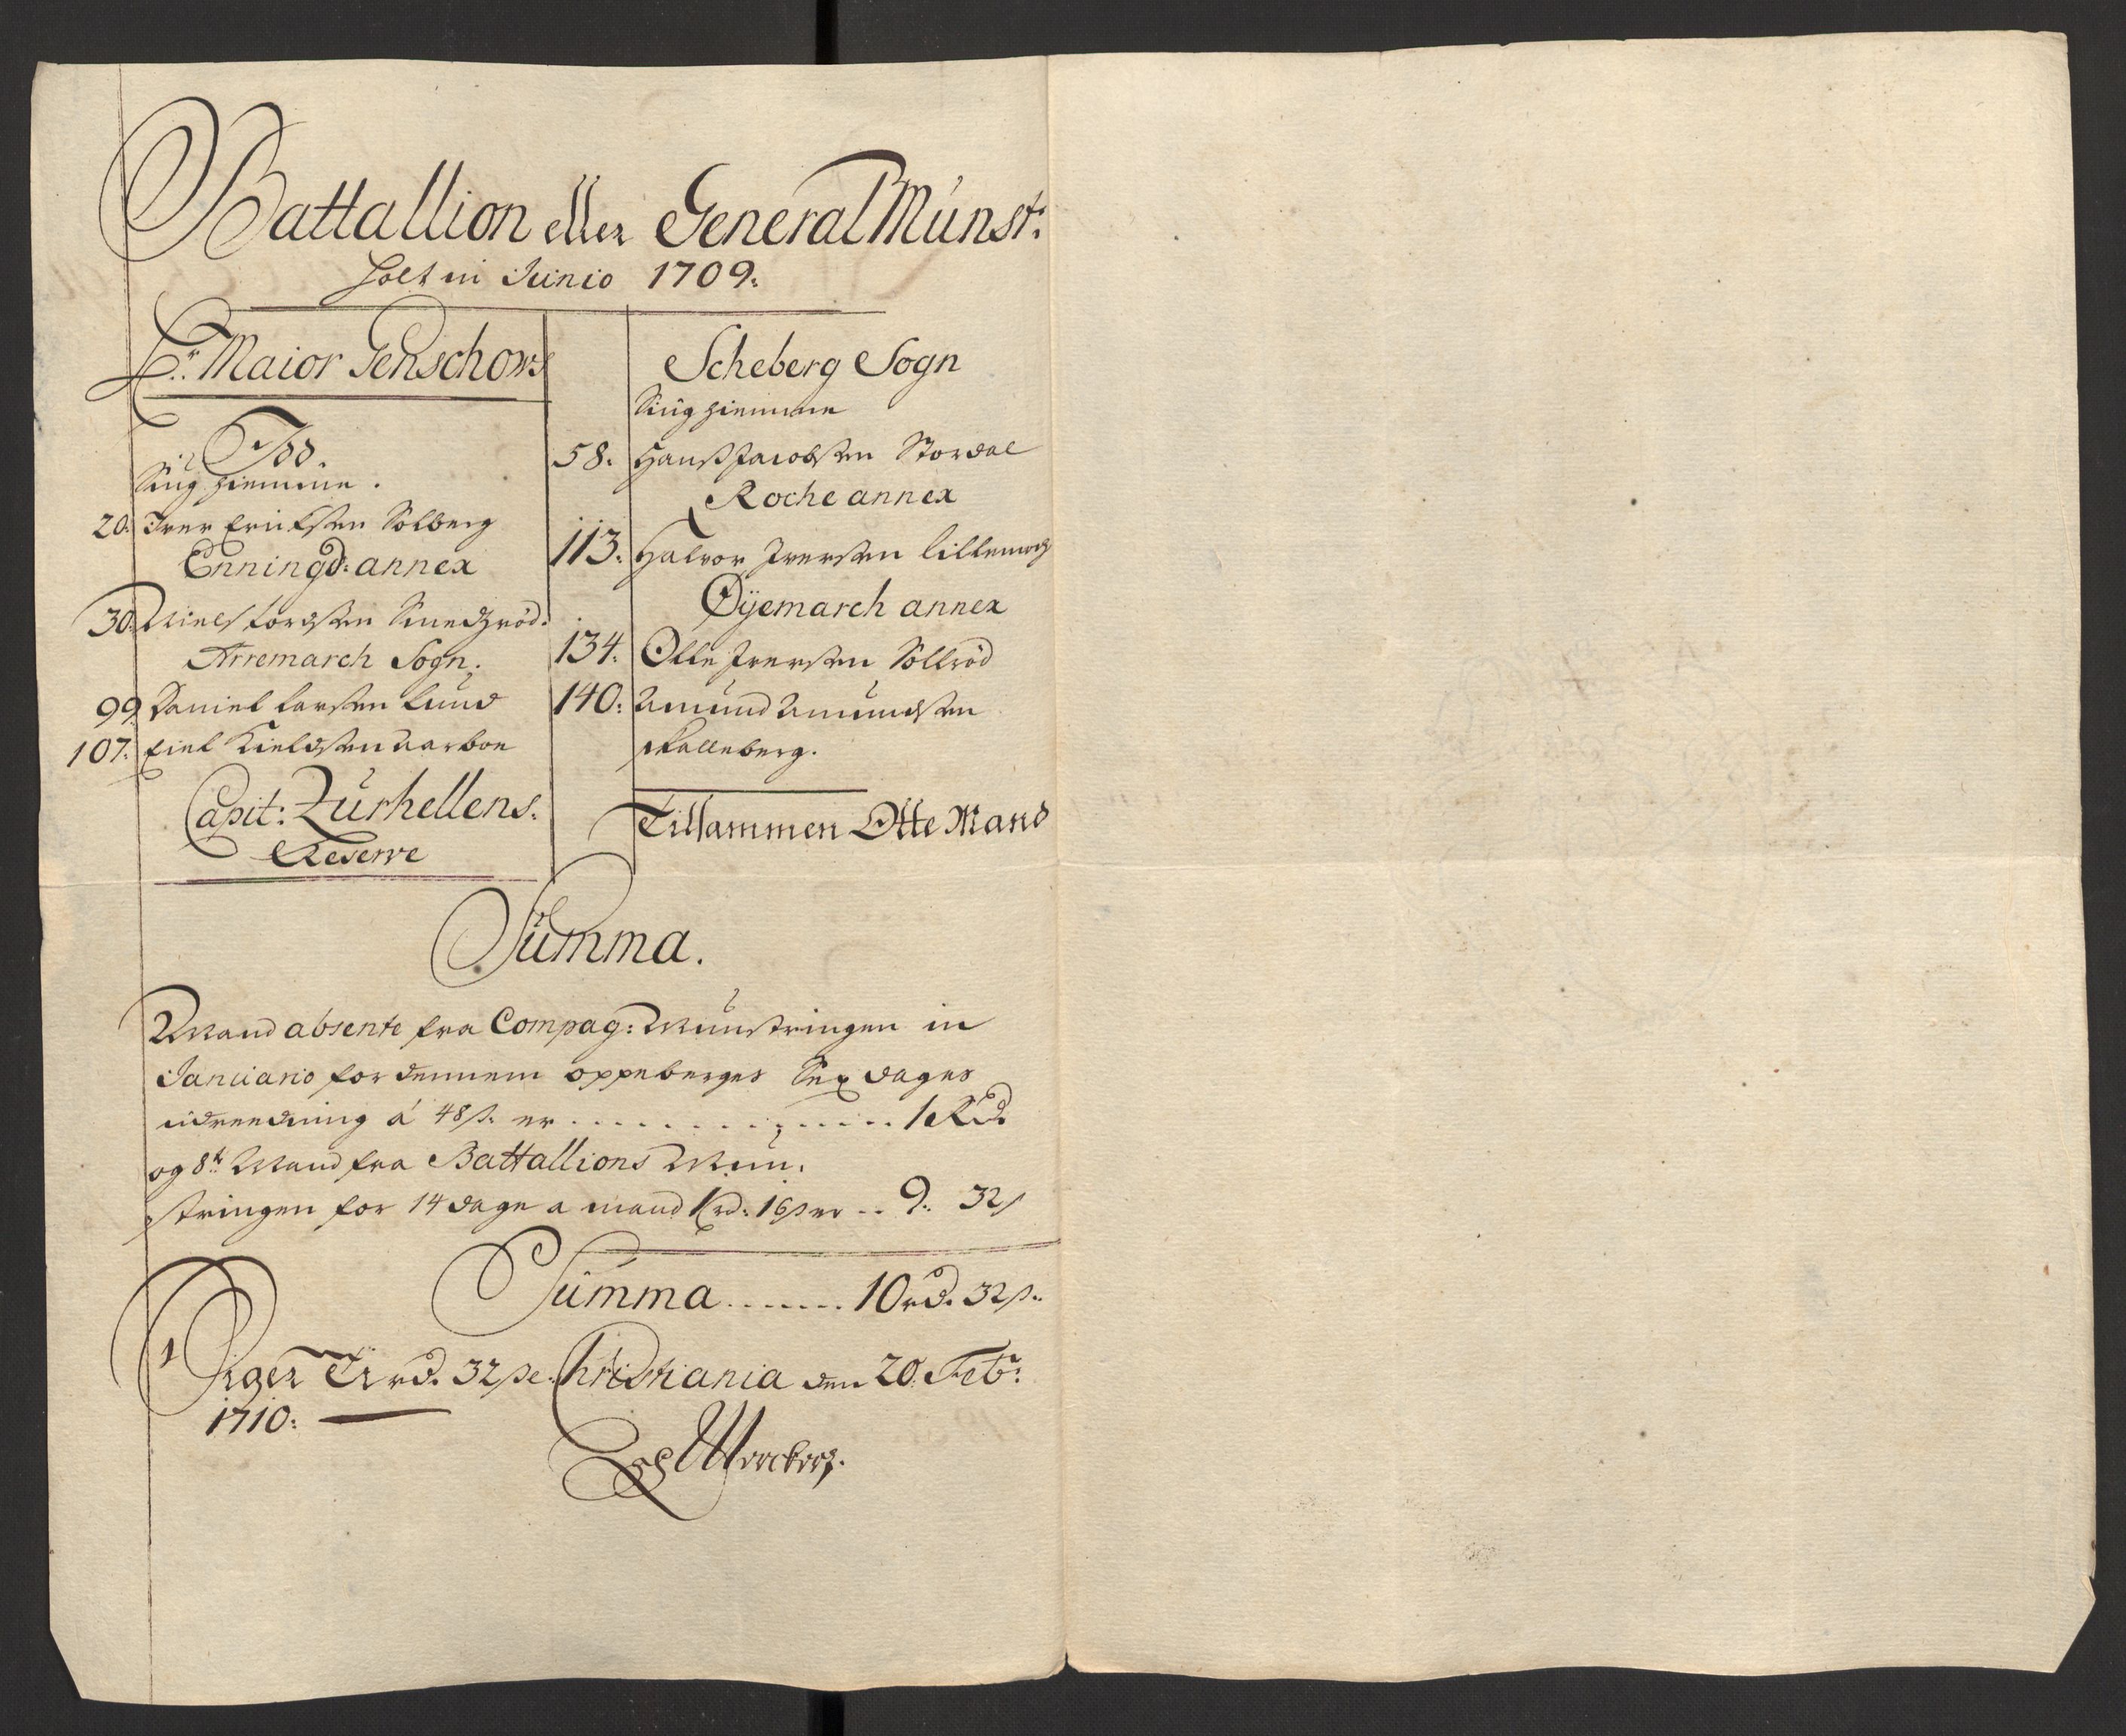 Battallion eller General Münst:
holt in Junio 1709:
Hr: Maior Genschows
Idd.
Siug hiemme.
20: Iver Ericksen Solberg
Enningd: annex
30: Niels Tordsen
Arremarch Sogn.
99 Daniel Larsen Lund
107: Kield Kieldsen Aarboe
Capit: Zürhellens.
Reserve
Scheberg Sogn
Siug hiemme
58. Hanß Jacobsen Stordal
Rocke annex
113: Halvor Iversen
Øÿemarch annex
134: Olle Iversen Sollröd
140: Amund Amundsen
Kalleberg.
Tilsammen Otte Mand
Summa.
2 Mand absente fra Compag: Munstringen in
Januario for dennem oppeberges Sex dages
udreedning á 48 s. er .............. 1 Rd.
og 8te Mand fra Battallions Mun:
stringen for 14 dage a mand 1 rd: 16 s er .. 9: 32 s
Summa ....... 10 rd. 32 s.
Siger Ti rd. 32 s. Christiania den 20. Feb:
1710: